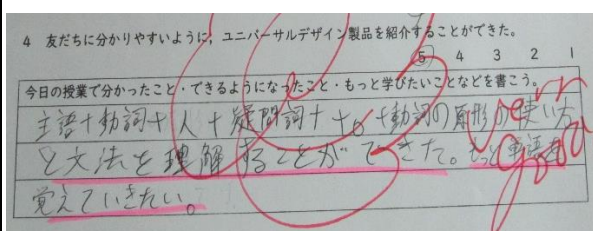 4 友だちに分かりやすいように，ユニバーサルデザイン製品を紹介することができた。
5 4 3 2 1
今日の授業で分かったこと・できるようになったこと・もっと学びたいことなどを書こう。
主語＋動詞＋人＋疑問詞＋to＋動詞の原形の使い方
と文法を理解することができた。もっと単語を
覚えていきたい。
Very
good